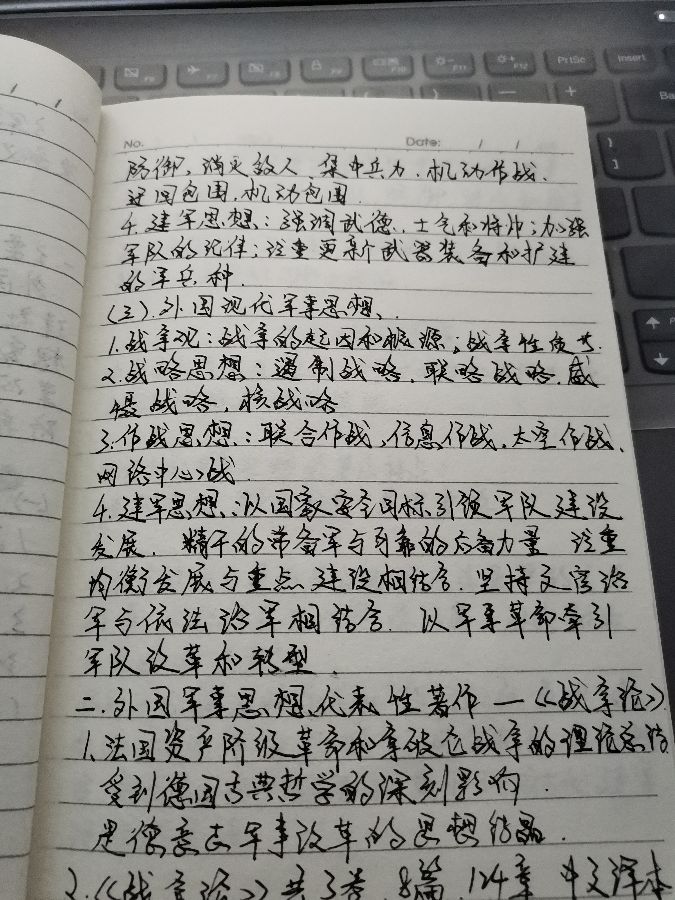 No. Date: / /
防御、消灭敌人、集中兵力、机动作战、
迂回包围,机动包围.
4.建军思想:强调武德、士气和将帅;加强
军队的纪律;注重更新武器装备和扩建
的军兵种.
(三).外国现代军事思想、
1.战争观:战争的起因和根源;战争性质等.
2.战略思想:遏制战略,联盟战略,威
慑战略,核战略
3.作战思想:联合作战,信息作战,太空作战,
网络中心战.
4.建军思想:以国家安全目标引领军队建设
发展. 精干的常备军与可靠的后备力量 注重
均衡发展与重点建设相结合.坚持文官治
军与依法治军相结合. 以军事革命牵引
军队改革和转型.
二.外国军事思想代表性著作—《战争论》
1.法国资产阶级革命和拿破仑战争的理论总结
受到德国古典哲学的深刻影响.
是德意志军事改革的思想结晶.
2.《战争论》共3卷,8篇,124章 中文译本
F9
F10
F11
F12
PrtSc
Insert
Ba